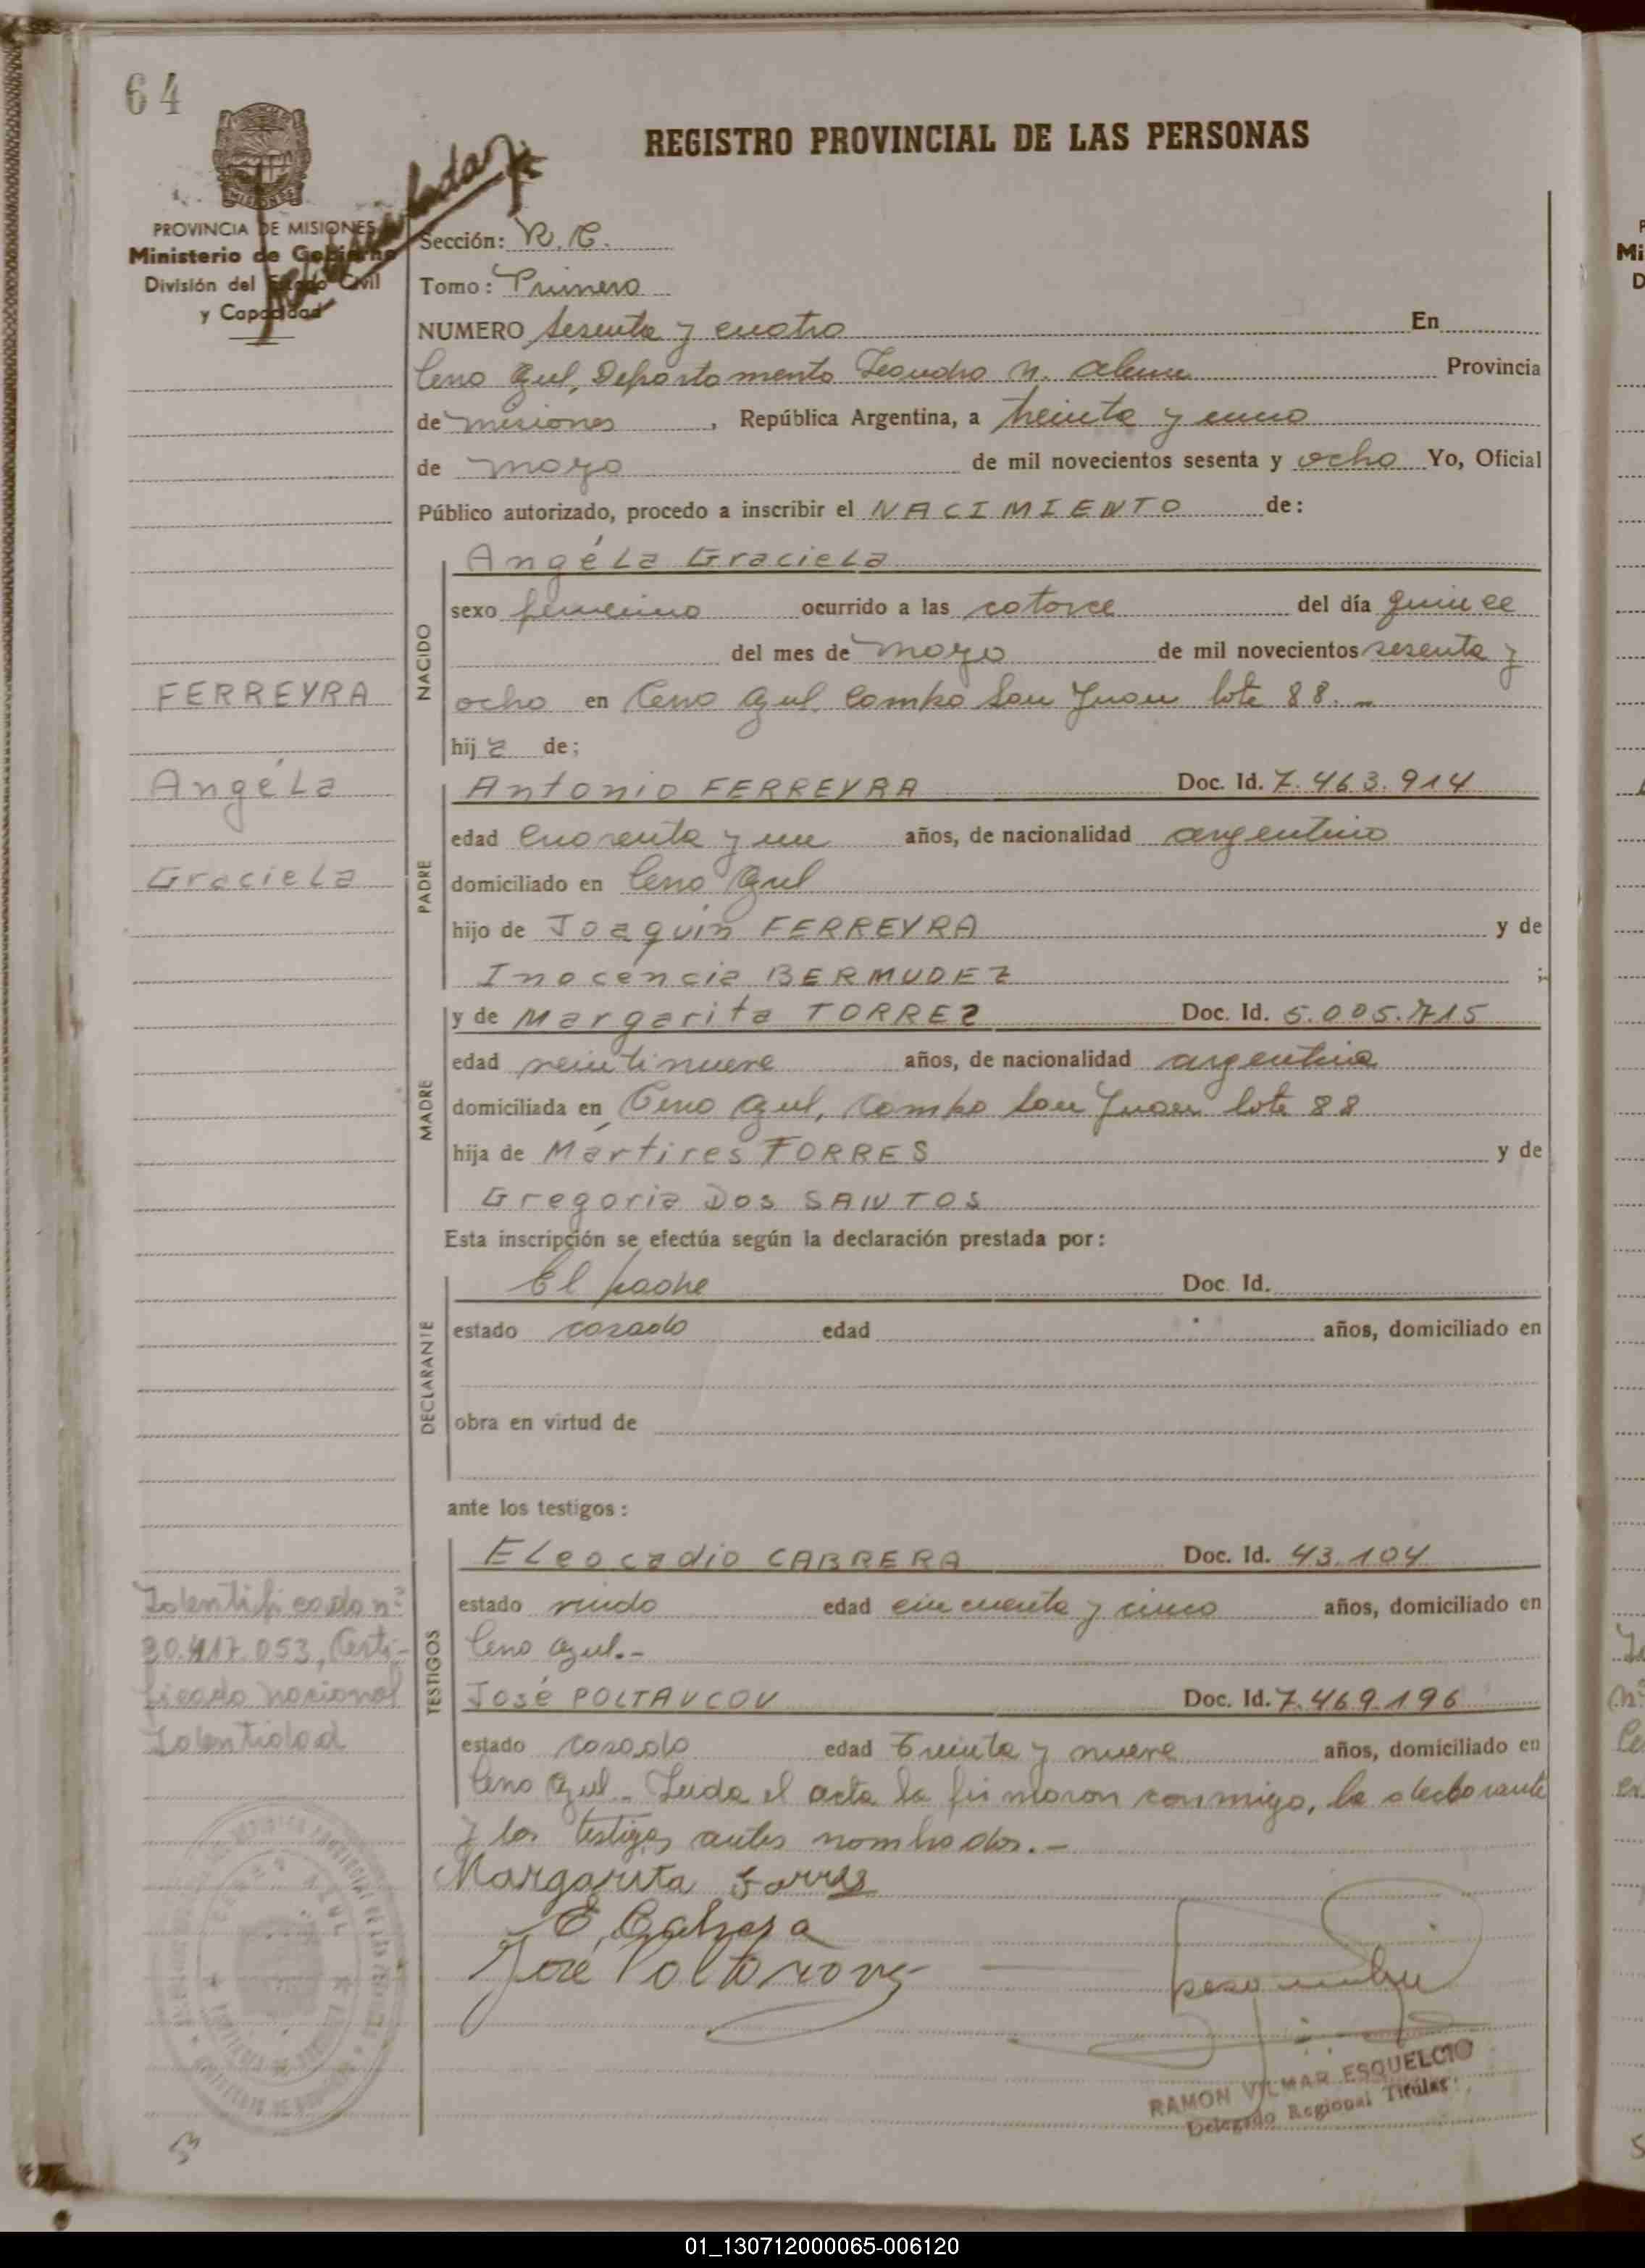 64
REGISTRO PROVINCIAL DE LAS PERSONAS
MISIONES
PROVINCIA DE MISIONES
Ministerio de Gobierno
División del Estado Civil
y Capacidad
Sección: R. C.
Tomo: Primero
NUMERO sesenta y cuatro En
Cerro Azul, Departamento Leandro N. Alem Provincia
de Misiones, República Argentina, a treinta y uno
de mayo de mil novecientos sesenta y ocho Yo, Oficial
Público autorizado, procedo a inscribir el NACIMIENTO de:
NACIDO
Angéla Graciela
sexo femenino ocurrido a las catorce del día quince
del mes de mayo de mil novecientos sesenta y
ocho en Cerro Azul, Campo San Juan lote 88.-
hija de;
FERREYRA
Angéla
Graciela
PADRE
Antonio FERREYRA Doc. Id. 7.463.914
edad cuarenta y un años, de nacionalidad argentino
domiciliado en Cerro Azul
hijo de Joaquín FERREYRA y de
Inocencia BERMUDEZ ;
MADRE
y de Margarita TORREZ Doc. Id. 5.005.715
edad veintinueve años, de nacionalidad argentina
domiciliada en Cerro Azul, Campo San Juan lote 88
hija de Mártires TORRES y de
Gregoria DOS SANTOS
Esta inscripción se efectúa según la declaración prestada por:
DECLARANTE
El padre Doc. Id.
estado casado edad años, domiciliado en
obra en virtud de
ante los testigos:
TESTIGOS
Eleocadio CABRERA Doc. Id. 43.104
estado viudo edad cincuenta y cinco años, domiciliado en
Cerro Azul.-
José POLTAVCOV Doc. Id. 7.469.196
estado casado edad treinta y nueve años, domiciliado en
Cerro Azul.- Leída el acta la firmaron conmigo, la declarante
y los testigos antes nombrados.-
Identificado nº
20.417.053, Certi-
ficado Nacional
Identidad
Margarita Torres
E. Cabrera
José Poltavcov
RAMON VILMAR ESQUELCIO
Delegado Regional Titular
01_130712000065-006120